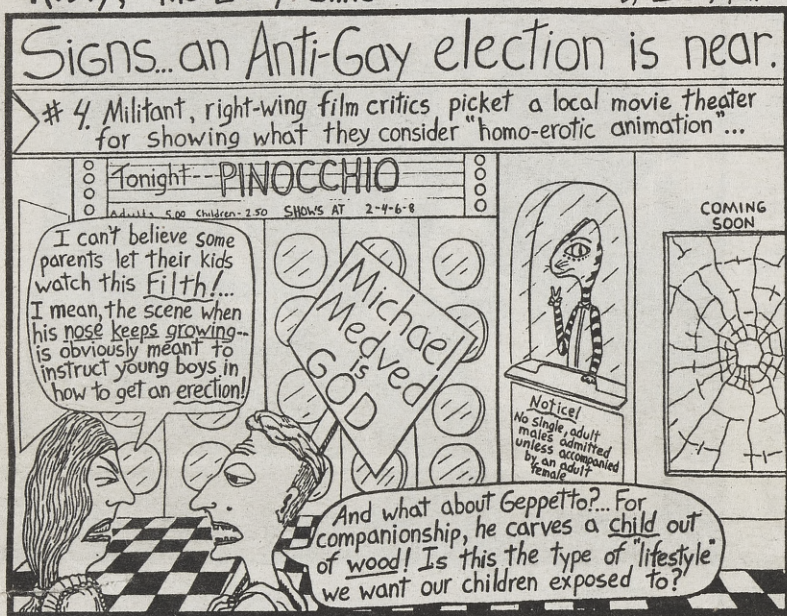 Signs...an Anti-Gay election is near.
#4. Militant, right-wing film critics picket a local movie theater
for showing what they consider "homo-erotic animation"...
Tonight--- PINOCCHIO
Adults 5.00 Children-2.50 SHOWS AT 2-4-6-8
I can't believe some
parents let their kids
watch this Filth!...
I mean, the scene when
his nose keeps growing--
is obviously meant to
instruct young boys in
how to get an erection!
Michael
Medved
is
GOD
COMING
SOON
Notice!
No single, adult
males admitted
unless accompanied
by an adult
female
And what about Geppetto?... For
companionship, he carves a child out
of wood! Is this the type of "lifestyle"
we want our children exposed to?